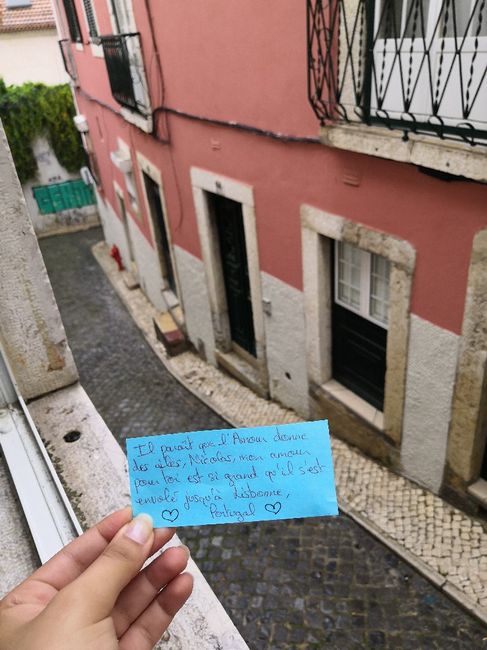 Il paraît que l'Amour donne
des ailes, Nicolas, mon amour
pour toi est si grand qu'il s'est
envolé jusqu'à Lisbonne,
♡ Portugal ♡